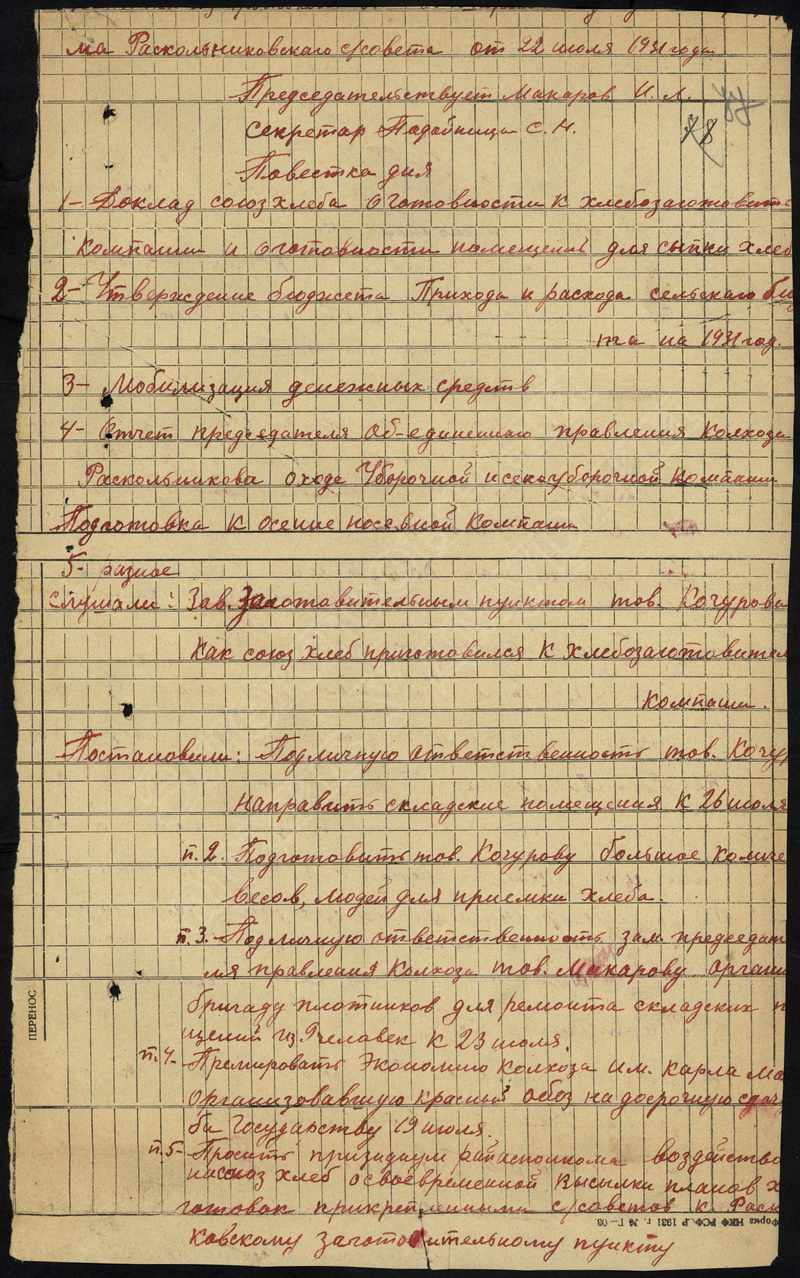 ма Раскольниковскаго с/совета от 22 июля 1931 года.
Председательствует Макаров И. Л.
78
секретар Падойница С. Н.
Повестка дня
1- Доклад союзхлеба о готовности к хлебозаготовите
компании и о готовности помещений для сыпки хлеб
2- Утверждение бюджета Прихода и расхода сельскаго бю
та на 1931 год.
3- Мобилизация денежных средств
4- Отчет председателя об-единеннаго правления колхоза
Раскольникова о ходе Уборочной и сеноуборочной компании
Подготовка к осенне посевной компани
5- разное
Слушали: Зав. Заготовительным пунктом тов. Кочурова
как союз хлеб приготовился к хлебозаготовител
компании.
Постановили: Под личную ответственность тов. Кочу
направить складские помещения к 26 июля
п. 2. Подготовить тов. Кочурову большое количе
весов, людей для приемки хлеба.
п. 3. Под личную ответственность зам. председат
ля правления колхоза тов. Макарову органи
бригаду плотников для ремонта складских п
щений из 7 человек к 23 июля.
п. 4- Премировать Экономию колхоза им. Карла Ма
организовавшую красный обоз на досрочную сдачу
ба государству 19 июля.
п. 5- Просить призидиум райисполкома воздейство
на союз хлеб о своевременной высылки планов х
готовок прикрепленными с/советов к Раск
ковскому заготовительному пункту
ПЕРЕНОС
Форма НКФ РСФСР 1931 г. № Г—08